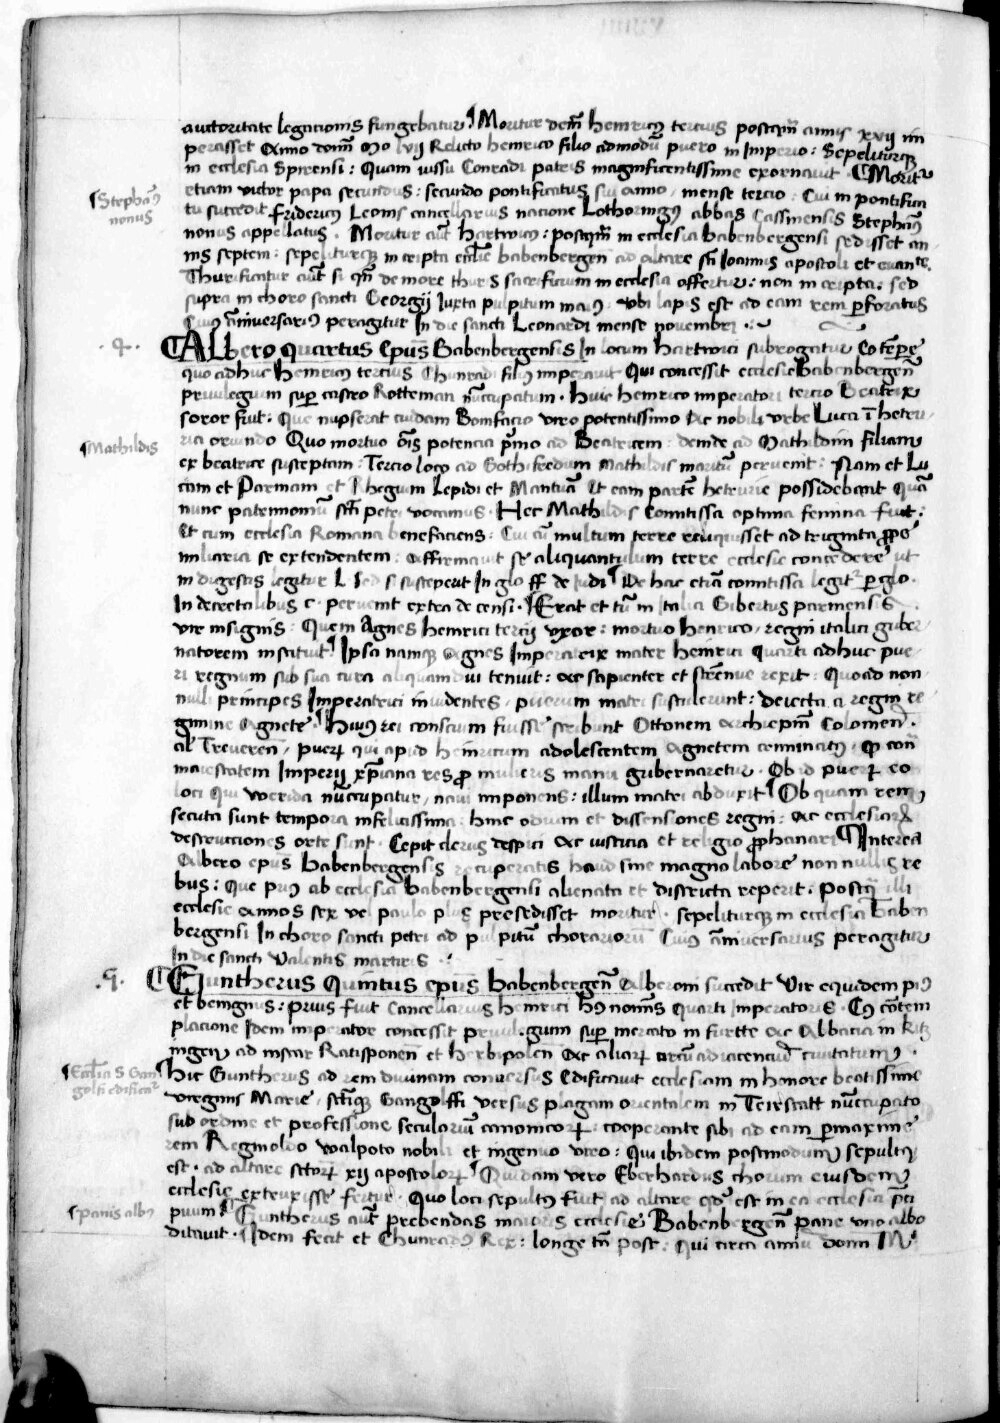 auctoritate legationis fungebatur ¶ Moritur demū henricꝰ tercius postqm̄ annis xxvij im
perasset Anno domī Mo lvij Relicto henrico filio admodū puero in Imperio : Sepeliturqꝫ
in ecclesia Spirensi : Quam iussu Conradi patris magnificentissime exornavit ¶ Moritʳ
etiam victor papa secundus : secundo pontificatus sui anno , mense tercio . Cui in pontifica
¶ Stephanꝰ nonus
tu succedit fridericꝰ Leonis cancellarius nacione Lothoringꝰ abbas Cassinensis Stephanꝰ
nonus appellatus . Moritur aūt hartwicus : postqm̄ in ecclesia babenbergensi sedisset an
nis septem : sepeliturqꝫ in cripta eccl̄ie babenbergen̄ ad altare sc̄i Ioannis apostoli et evan̄te .
Thurificatur aūt si qn̄ de more thuris sacrificium in ecclesia offertur : non in cripta : sed
supra in choro sancti Georgij Iuxta pulpitum maiꝰ . ubi lapis est ad eam rem ꝑforatus
Cuiꝰ ān̄iversariꝰ peragitur In die sancti Leonardi mense novembri .
. 4 .
¶ Albero quartus Ep̄us Babenbergensis In locum hartwici subrogatur Eo tēpe
quo adhuc henricꝰ tercius Chunradi filiꝰ imperavit . Qui concessit ecclesie Babenbergen̄
privilegium suꝑ castro Rotteman nūcupatum . Huic henrico imperatori tercio Beatrix
soror fuit . Que nupserat cuidam Bonifacio viro potentissimo Ac nobili urbe Luca ī hetru
¶ Mathildis
ria oriundo Quo mortuo ōis potencia pͥmo ad Beatricem : deinde ad Mathildim filiam
ex beatrice susceptam : Tercio loco ad Gothifredum Mathildis maritū pervenit : Nam et Lu
cam et Parmam et Rhegium Lepidi et Mantuā Et eam partē hetrurie possidebant Quā
nunc patrimoniū sc̄ti petri vocamus . Hec Mathildis Comitissa optima femina fuit :
Et cum ecclesia Romana benefaciens : Cui cū multum terre reliquisset ad triginta ꝓpe
miliaria se extendentem : affirmavit se aliquantulum terre ecclesie concedere ut
in digestis legitur L Sed si susceperit In glo ff de iudi ¶ De hac etiā comitissa legitʳ ꝑ glo .
In decretalibus c . pervenit extra de censi . ¶ Erat et tū in Italia Gibertus parmensis
vir insignis : Quem Agnes henrici tercij uxor : mortuo henrico , regni italici guber
natorem instituit ¶ Ipsa namqꝫ Agnes Imperatrix mater heinrici Quarti adhuc pue
ri regnum sub sua cura aliquamdiu tenuit : ac sapienter et strēnue rexit : Quoad non
nulli principes Imperatrici invidentes , puerum matri sustulerunt : deiecta a regni re
gimine Agnete ¶ Huiꝰ rei conscium fuisse scribunt Ottonem Archiep̄m Colonien̄ .
al̄ Treveren̄ , pueꝝ qui apud heinricum adolescentem Agnetem criminatꝰ .
maiestatem Imperij xp̄iana res ꝓ mulieris manu gubernaretur . Ob id pueꝝ eo
loci Qui Werida nūcupatur , navi imponens : illum matri abduxit ¶ Ob quam rem
secuta sunt tempora infelicissima : hinc odium et dissensiones regni : Ac ecclesiaꝝ
destructiones orte sunt . Cepit clerus despici Ac iusticia et religio ꝓphanari ¶ Interea
Albero ep̄us babenbergensis recuperatis haud sine magno labore non nullis re
bus : Que priꝰ ab ecclesia babenbergensi alienata et districta reperit : Postqͣ illi
ecclesie annos sex vel paulo plus presedisset moritur . sepeliturqꝫ in ecclesia baben
bergensi In choro sancti petri ad pulpitū chorarioru̅ Cuiꝰ ān̄iversarius peragitur
In die sancti Valentis martiris .
. 5 .
¶ Guntherus Quintus ep̄us babenbergen̄ Alberoni succedit Vir equidem piꝰ
et benignus : prius fuit Cancellarius heinrici hꝰ nominis Quarti Imperatoris . Cꝰ cōtem
placione Idem imperator concessit privilegium suꝑ mercato in furtte Ac Abbacia in kitz
ingen ad instar Ratisponen̄ et herbipolen̄ Ac aliaꝝ circū adiacenciū civitatum .
¶ Eccl̄ia S Gan golfi edificatʳ
¶ Hic Guntherus ad rem divinam conversus Edificavit ecclesiam in honore beatissime
virginis Marie , sc̄tiqꝫ Gangolffi versus plagam orientalem in Teirstatt nūcupato
sub ordine et professione seculariū canonicoꝝ . cooperante sibi ad eam ꝑmaxime
rem Regnoldo walpoto nobili et ingenuo viro : Qui ibidem postmodum sepultꝰ
est . ad altare sc̄toꝝ xij apostoloꝝ ¶ Quidam vero Eberhardus chorum eiusdem
ecclesie extruxisse fertur . Quo loci sepultꝰ fuit ad altare Qd̄ est in ea ecclesia p̄ci
¶ panis albꝰ
puum ¶ Guntherus aūt prebendas maioris ecclesie Babenbergen̄ pane uno albo
ditavit . Idem fecit et Chunradꝰ Rex : longe tn̄ post . Qui circa annū domi M